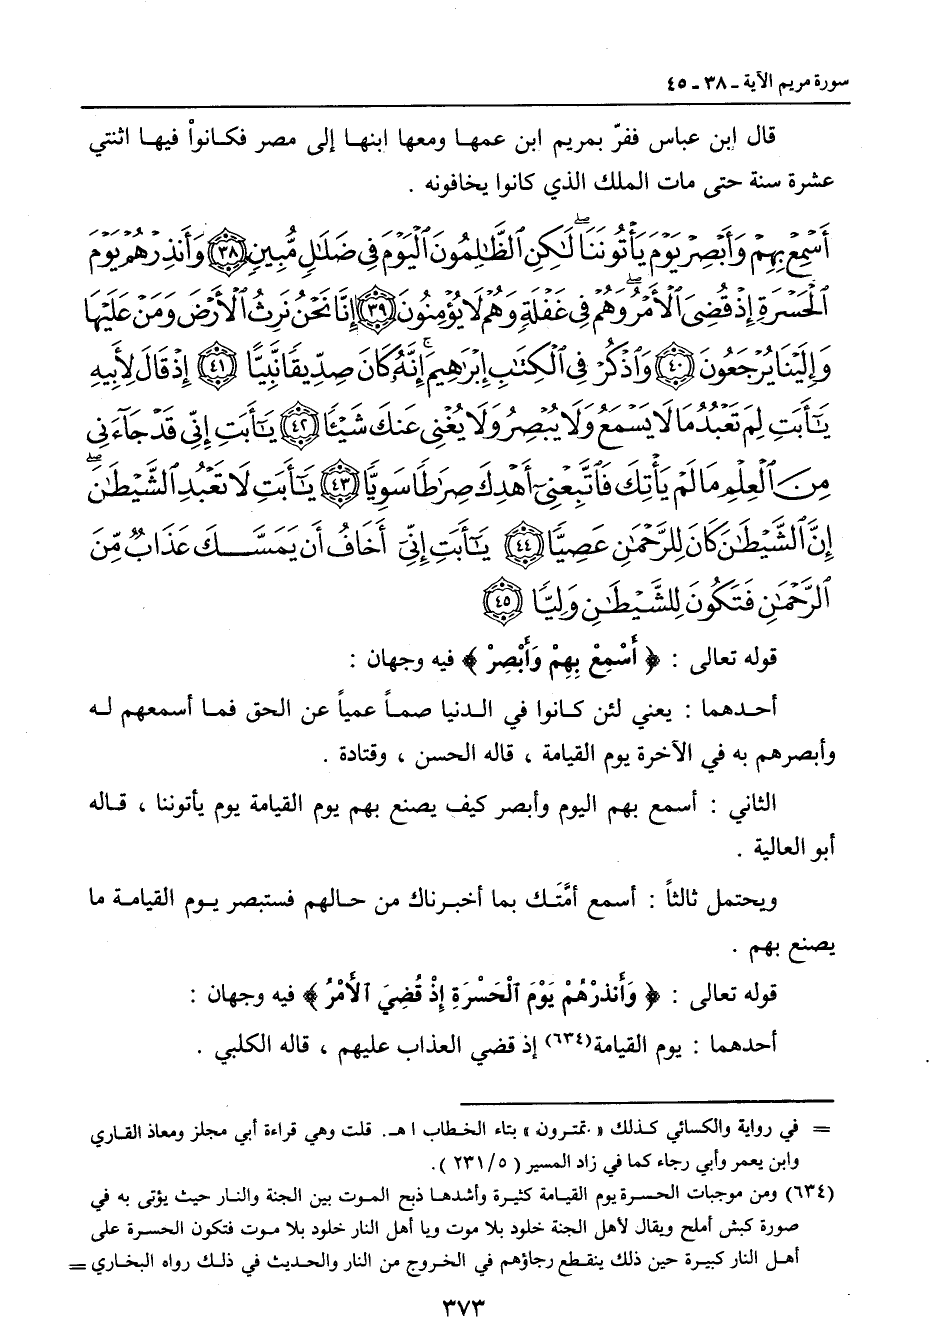 سورة مريم الآية ـ ٣٨ ـ ٤٥
قال ابن عباس ففرّ بمريم ابن عمها ومعها ابنها إلى مصر فكانوا فيها اثنتي
عشرة سنة حتى مات الملك الذي كانوا يخافونه .
أَسْمِعْ بِهِمْ وَأَبْصِرْ يَوْمَ يَأْتُونَنَا ۖ لَٰكِنِ ٱلظَّٰلِمُونَ ٱلْيَوْمَ فِى ضَلَٰلٍ مُّبِينٍ ﴿٣٨﴾ وَأَنذِرْهُمْ يَوْمَ
ٱلْحَسْرَةِ إِذْ قُضِىَ ٱلْأَمْرُ ۖ وَهُمْ فِى غَفْلَةٍ وَهُمْ لَا يُؤْمِنُونَ ﴿٣٩﴾ إِنَّا نَحْنُ نَرِثُ ٱلْأَرْضَ وَمَنْ عَلَيْهَا
وَإِلَيْنَا يُرْجَعُونَ ﴿٤٠﴾ وَٱذْكُرْ فِى ٱلْكِتَٰبِ إِبْرَٰهِيمَ ۚ إِنَّهُۥ كَانَ صِدِّيقًا نَّبِيًّا ﴿٤١﴾ إِذْ قَالَ لِأَبِيهِ
يَٰٓأَبَتِ لِمَ تَعْبُدُ مَا لَا يَسْمَعُ وَلَا يُبْصِرُ وَلَا يُغْنِى عَنكَ شَيْـًٔا ﴿٤٢﴾ يَٰٓأَبَتِ إِنِّى قَدْ جَآءَنِى
مِنَ ٱلْعِلْمِ مَا لَمْ يَأْتِكَ فَٱتَّبِعْنِىٓ أَهْدِكَ صِرَٰطًا سَوِيًّا ﴿٤٣﴾ يَٰٓأَبَتِ لَا تَعْبُدِ ٱلشَّيْطَٰنَ ۖ
إِنَّ ٱلشَّيْطَٰنَ كَانَ لِلرَّحْمَٰنِ عَصِيًّا ﴿٤٤﴾ يَٰٓأَبَتِ إِنِّىٓ أَخَافُ أَن يَمَسَّكَ عَذَابٌ مِّنَ
ٱلرَّحْمَٰنِ فَتَكُونَ لِلشَّيْطَٰنِ وَلِيًّا ﴿٤٥﴾
قوله تعالى : ﴿ أَسْمِعْ بِهِمْ وَأَبْصِرْ ﴾ فيه وجهان :
أحدهما : يعني لئن كانوا في الدنيا صماً عمياً عن الحق فما أسمعهم له
وأبصرهم به في الآخرة يوم القيامة ، قاله الحسن ، وقتادة .
الثاني : أسمع بهم اليوم وأبصر كيف يصنع بهم يوم القيامة يوم يأتوننا ، قاله
أبو العالية .
ويحتمل ثالثاً : أسمع أمَّتَك بما أخبرناك من حالهم فستبصر يوم القيامة ما
يصنع بهم .
قوله تعالى : ﴿ وَأَنذرْهُمْ يَوْمَ ٱلْحَسْرَةِ إِذْ قُضِيَ ٱلأَمْرُ ﴾ فيه وجهان :
أحدهما : يوم القيامة(٦٣٤) إذ قضي العذاب عليهم ، قاله الكلبي .
= في رواية والكسائي كذلك « تمترون » بتاء الخطاب ا هـ. قلت وهي قراءة أبي مجلز ومعاذ القاري
وابن يعمر وأبي رجاء كما في زاد المسير ( ٢٣١/٥ ).
(٦٣٤) ومن موجبات الحسرة يوم القيامة كثيرة وأشدها ذبح الموت بين الجنة والنار حيث يؤتى به في
صورة كبش أملح ويقال لأهل الجنة خلود بلا موت ويا أهل النار خلود بلا موت فتكون الحسرة على
أهل النار كبيرة حين ذلك ينقطع رجاؤهم في الخروج من النار والحديث في ذلك رواه البخاري =
٣٧٣